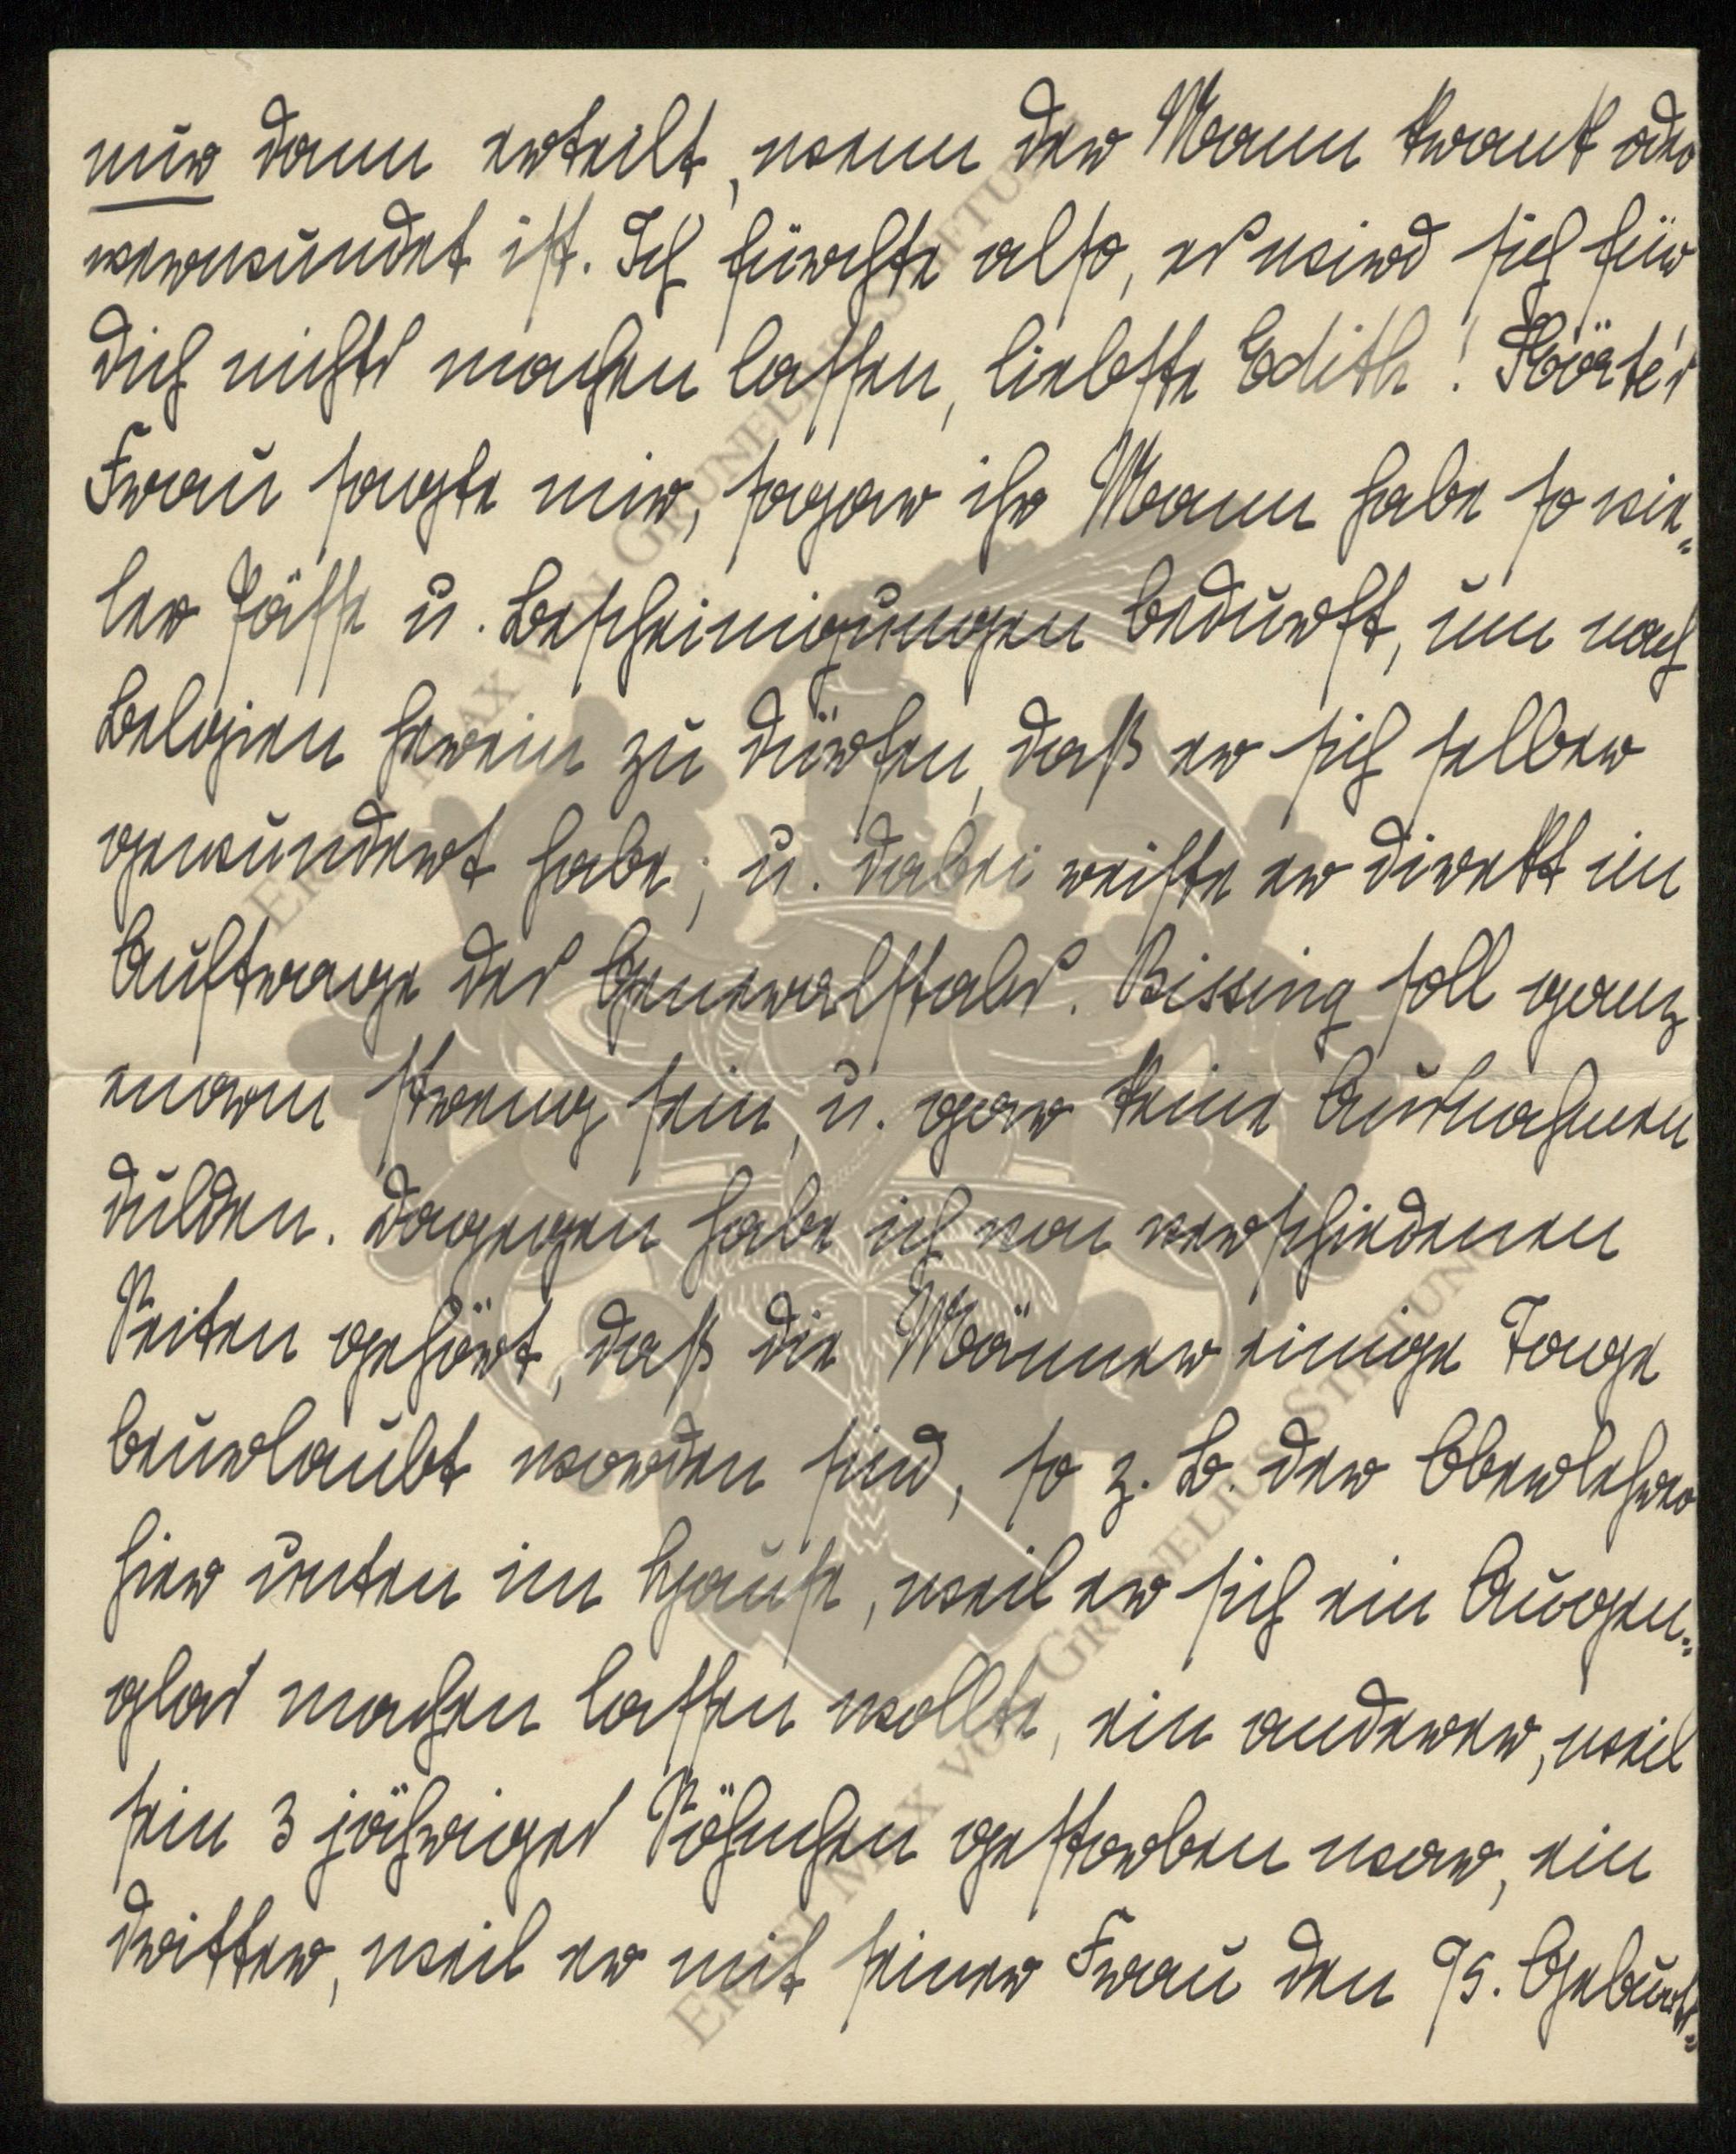 nur dann erteilt, wenn der Mann krank oder
verwundet ist. Ich fürchte also, es wird sich für
Dich nichts machen lassen, liebste Edith!
Frau sagte mir, sogar ihr Mann habe so vie-
ler Pässe u. Bescheinigungen bedurft, um nach
Belgien herein zu dürfen, daß er sich selber
gewundert habe; u. dabei reiste er direkt im
Auftrage des Generalstabs. Bissing soll ganz
enorm streng sein, u. gar keine Ausnahmen
dulden. Dagegen habe ich von verschiedenen
Seiten gehört, daß die Männer einige Tage
beurlaubt worden sind, so z. B. der Oberlehrer
hier unten im Hause, weil er sich ein Augen-
glas machen lassen wollte, ein anderer, weil
sein 3 jähriges Söhnchen gestorben war, ein
dritter, weil er mit seiner Frau den 95. Geburts-
ERNST MAX VON GRUNELIUS STIFTUNG
ERNST MAX VON GRUNELIUS STIFTUNG